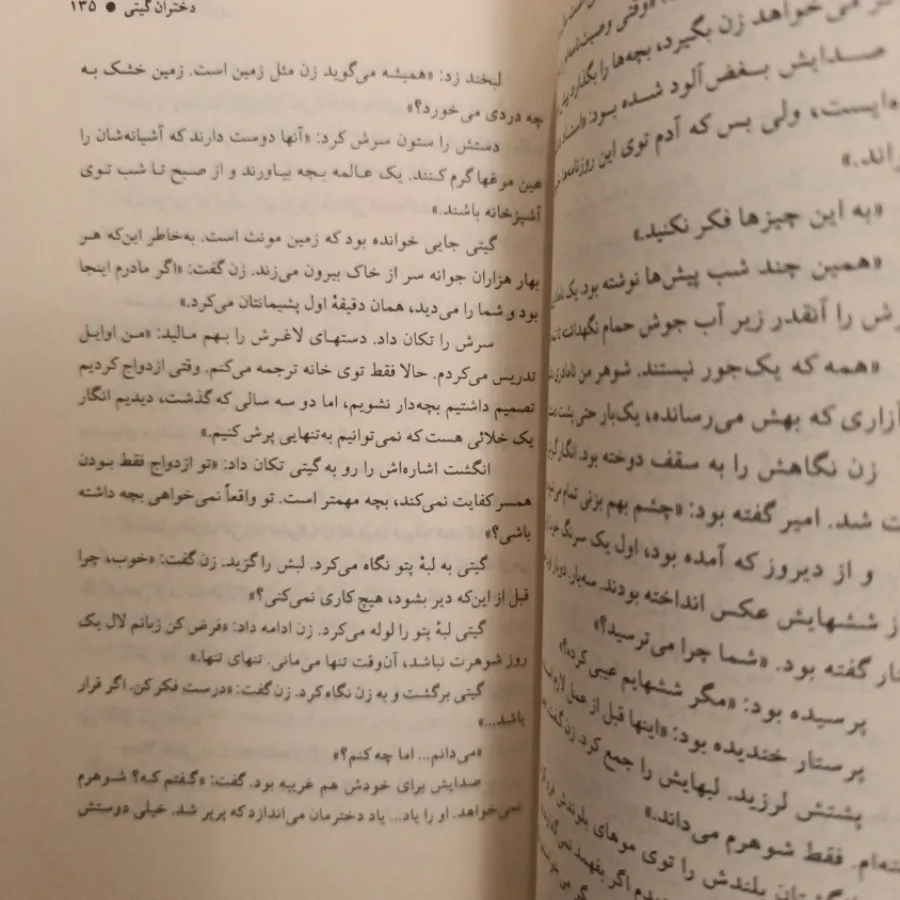 دختران گیتی ● ۱۳۵
لبخند زد: «همیشه می‌گوید زن مثل زمین است. زمین خشک به
چه دردی می‌خورد؟»
دستش را ستون سرش کرد: «آنها دوست دارند که آشیانه‌شان را
عین مرغها گرم کنند. یک عالمه بچه بیاورند و از صبح تا شب توی
آشپزخانه باشند.»
گیتی جایی خوانده بود که زمین مونث است. به‌خاطر این‌که هر
بهار هزاران جوانه سر از خاک بیرون می‌زند. زن گفت: «اگر مادرم اینجا
بود و شما را می‌دید، همان دقیقهٔ اول پشیمانتان می‌کرد.»
سرش را تکان داد. دستهای لاغرش را بهم مالید: «من اوایل
تدریس می‌کردم. حالا فقط توی خانه ترجمه می‌کنم. وقتی ازدواج کردیم
تصمیم داشتیم بچه‌دار نشویم، اما دو سه سالی که گذشت، دیدیم انگار
یک خلائی هست که نمی‌توانیم به‌تنهایی پرش کنیم.»
انگشت اشاره‌اش را رو به گیتی تکان داد: «تو ازدواج فقط بودن
همسر کفایت نمی‌کند، بچه مهمتر است. تو واقعاً نمی‌خواهی بچه داشته
باشی؟»
گیتی به لبهٔ پتو نگاه می‌کرد. لبش را گزید. زن گفت: «خوب، چرا
قبل از این‌که دیر بشود، هیچ کاری نمی‌کنی؟»
گیتی لبهٔ پتو را لوله می‌کرد. زن ادامه داد: «فرض کن زبانم لال یک
روز شوهرت نباشد، آن‌وقت تنها می‌مانی. تنهای تنها.»
گیتی برگشت و به زن نگاه کرد. زن گفت: «درست فکر کن. اگر قرار
باشد...»
«می‌دانم... اما چه کنم؟»
صدایش برای خودش هم غریبه بود. گفت: «گفتم که؟ شوهرم
نمی‌خواهد. او را یاد... یاد دخترمان می‌اندازد که پرپر شد. خیلی دوستش
«وقتی
می‌خواهد زن بگیرد، بچه‌ها را بگذارد
صدایش بغض‌آلود شده بود:
ولی بس که آدم توی این روزنامه‌ها
«به این چیزها فکر نکنید.»
«همین چند شب پیش‌ها نوشته بود. یک
را آنقدر زیر آب جوش حمام نگهداشت
«همه که یک‌جور نیستند. شوهر من
آزاری که بهش می‌رسانده، یک‌بار حتی پشت
زن نگاهش را به سقف دوخته بود. انگار
شد. امیر گفته بود: «چشم بهم بزنی تمام
و از دیروز که آمده بود، اول یک سرنگ
از ششهایش عکس انداخته بودند.
گفته بود. «شما چرا می‌ترسید؟»
پرسیده بود: «مگر ششهایم عیبی کرده؟»
پرستار خندیده بود: «اینها قبل از عمل لازم
پشتش لرزید. لبهایش را جمع کرد. زن گفت
فقط شوهرم می‌داند.»
بلندش را توی موهای بلوندش
اگر بفهمد